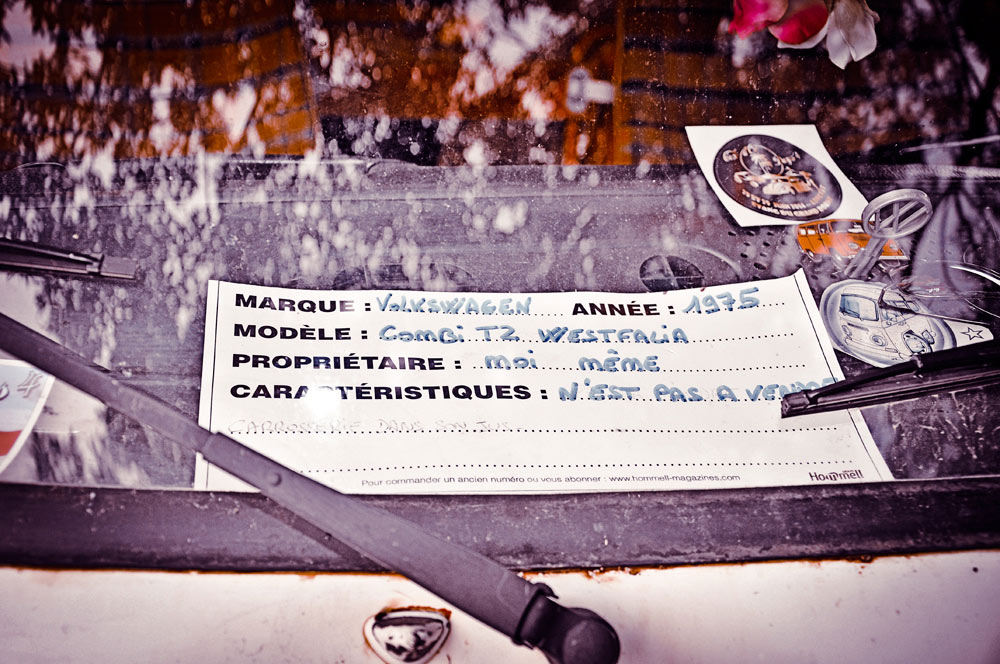 MARQUE : VOLKSWAGEN ANNÉE : 1975
MODÈLE : COMBI T2 WESTFALIA
PROPRIÉTAIRE : MOI MÊME
CARACTÉRISTIQUES : N'EST PAS A VENDRE
CARROSSERIE DANS SON JUS
Pour commander un ancien numéro ou vous abonner : www.hommell-magazines.com
Hommell